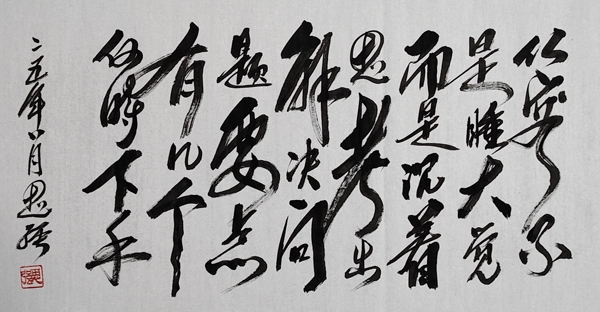 从容不
是睡大觉
而是沉着
思考出
解决问
题要点
有几个
何時下手
二五年八月思